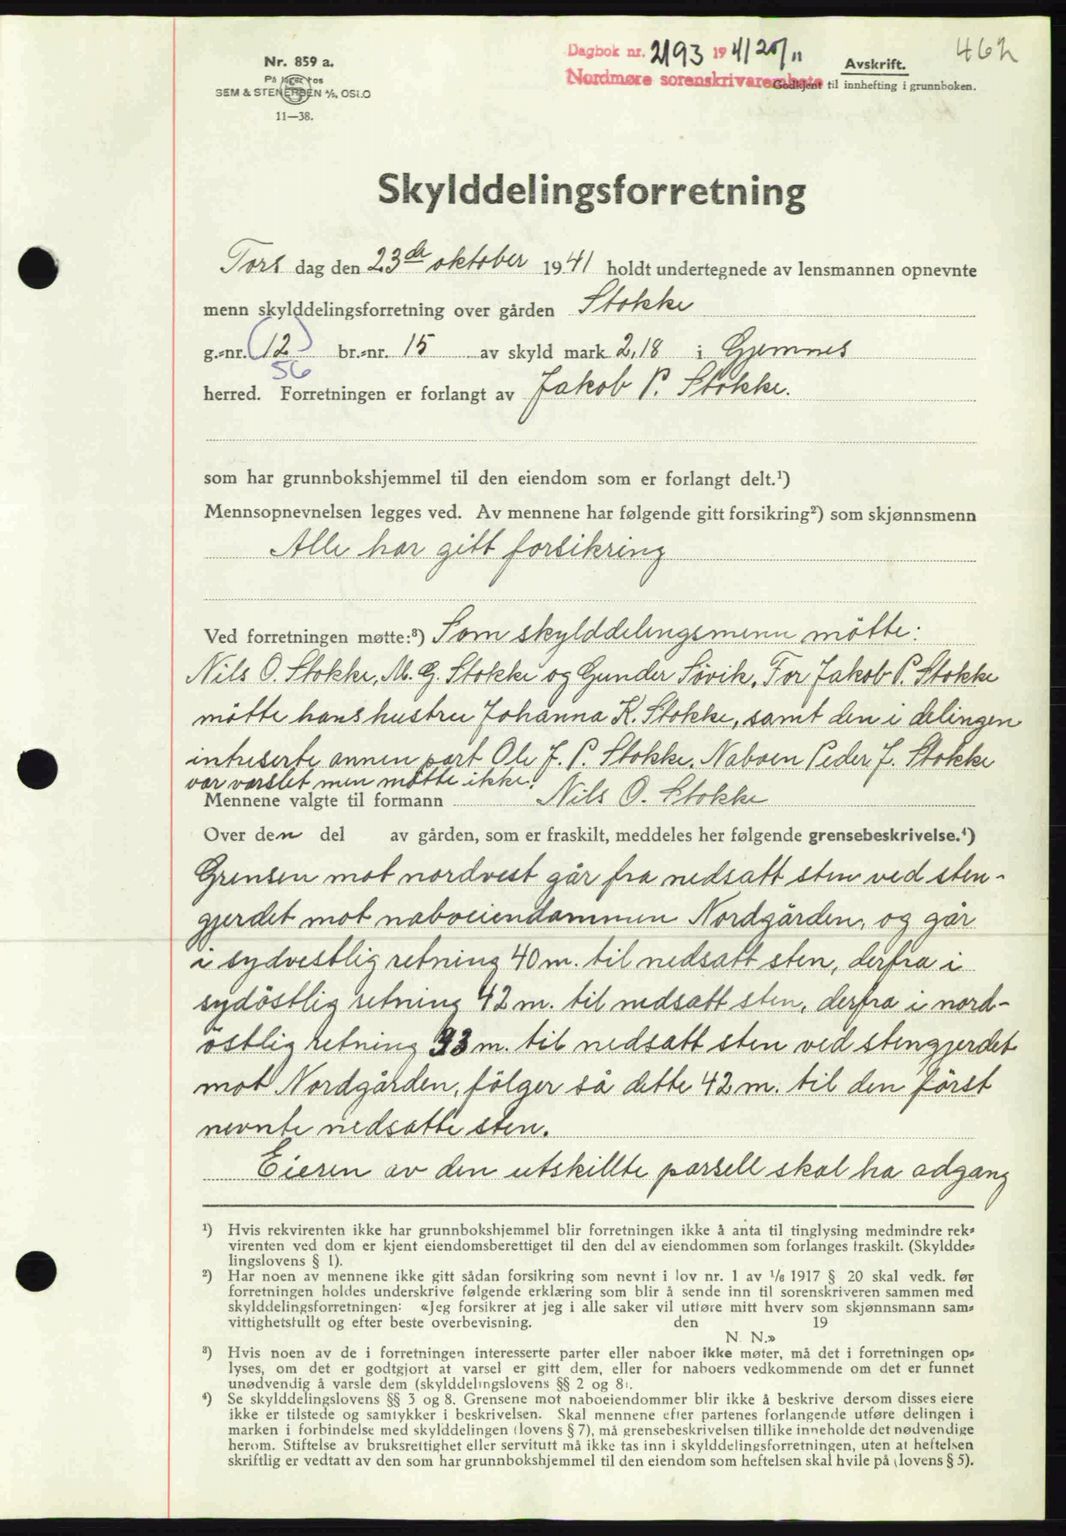 462
Dagbok nr. 2193 1941 20/11
Nordmøre sorenskrivarembete
Nr. 859 a.
På lager hos
SEM & STENERSEN A/S, OSLO
11—38.
Avskrift.
Godkjent til innhefting i grunnboken.
Skylddelingsforretning
Tors dag den 23de oktober 1941 holdt undertegnede av lensmannen opnevnte
menn skylddelingsforretning over gården Stokke
g.-nr. (12) br.-nr. 15 av skyld mark 2,18 i Gjemnes
56
herred. Forretningen er forlangt av Jakob P. Stokke.
som har grunnbokshjemmel til den eiendom som er forlangt delt.¹)
Mennsopnevnelsen legges ved. Av mennene har følgende gitt forsikring²) som skjønnsmenn
Alle har gitt forsikring
Ved forretningen møtte:³) Som skylddelingsmenn mötte:
Nils O. Stokke, M. G. Stokke og Gunder Sövik, For Jakob P. Stokke
mötte hans hustru Johanna K. Stokke, samt den i delingen
intreserte annen part Ole J. P. Stokke. Naboen Peder J. Stokke
var varslet men mötte ikke.
Mennene valgte til formann Nils O. Stokke
Over den del av gården, som er fraskilt, meddeles her følgende grensebeskrivelse.⁴)
Grensen mot nordvest går fra nedsatt sten ved sten-
gjerdet mot naboeiendommen Nordgården, og går
i sydvestlig retning 40 m. til nedsatt sten, derfra i
sydöstlig retning 42 m. til nedsatt sten, derfra i nord-
östlig retning 33 m. til nedsatt sten ved stengjerdet
mot Nordgården, fölger så dette 42 m. til den först
nevnte nedsatte sten.
Eieren av den utskillte parsell skal ha adgang
¹) Hvis rekvirenten ikke har grunnbokshjemmel blir forretningen ikke å anta til tinglysing medmindre rek-
virenten ved dom er kjent eiendomsberettiget til den del av eiendommen som forlanges fraskilt. (Skyldde-
lingslovens § 1).
²) Har noen av mennene ikke gitt sådan forsikring som nevnt i lov nr. 1 av 1/6 1917 § 20 skal vedk. før
forretningen holdes underskrive følgende erklæring som blir å sende inn til sorenskriveren sammen med
skylddelingsforretningen: «Jeg forsikrer at jeg i alle saker vil utføre mitt hverv som skjønnsmann sam-
vittighetsfullt og efter beste overbevisning. den 19
N. N.»
³) Hvis noen av de i forretningen interesserte parter eller naboer ikke møter, må det i forretningen op-
lyses, om det er godtgjort at varsel er gitt dem, eller for naboers vedkommende om det er funnet
unødvendig å varsle dem (skylddelingslovens §§ 2 og 8).
⁴) Se skylddelingslovens §§ 3 og 8. Grensene mot naboeiendommer blir ikke å beskrive dersom disses eiere
ikke er tilstede og samtykker i beskrivelsen. Skal mennene efter partenes forlangende utføre delingen i
marken i forbindelse med skylddelingen (lovens § 7), må grensebeskrivelsen tillike inneholde det nødvendige
herom. Stiftelse av bruksrettighet eller servitutt må ikke tas inn i skylddelingsforretningen, uten at heftelsen
skriftlig er vedtatt av den som har grunnbokshjemmel til den eiendom som heftelsen skal hvile på (lovens § 5).